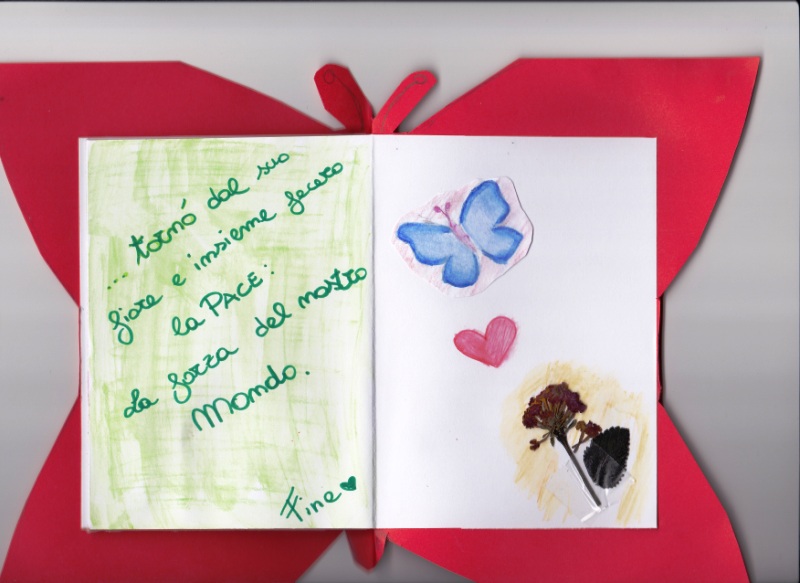 ... tornó dal suo
fiore e insieme fecero
la PACE:
La forza del nostro
Mondo.
Fine